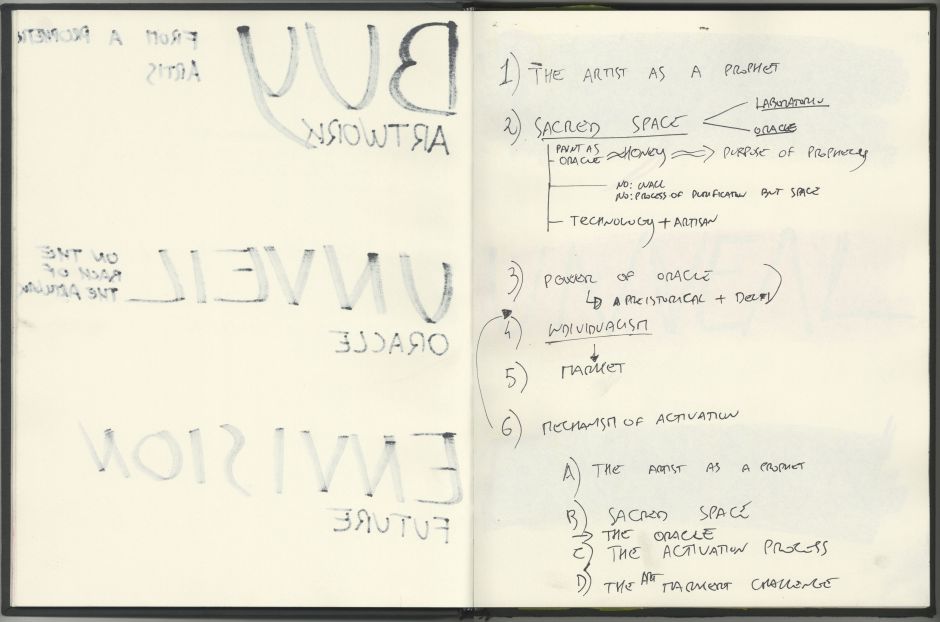 BUY
FROM A PROPHETIC
ARTIS
ARTWORK
UNVEIL
ON THE
BACK OF
THE ARTWORK
ORACLE
ENVISION
FUTURE
1) THE ARTIST AS A PROPHET
2) SACRED SPACE
LABORATORIU
ORACLE
PAINT AS
ORACLE ≈ HONEY ⇒ PURPOSE OF PROPHECY
NO: WALL
NO: PROCESS OF PURIFICATION BUT SPACE
TECHNOLOGY + ARTISAN
3) POWER OF ORACLE
↳ A PREISTORICAL + DELFI
4) INDIVIDUALISM
5) MARKET
6) MECHANISM OF ACTIVATION
A) THE ARTIST AS A PROPHET
B) SACRED SPACE
→ THE ORACLE
C) THE ACTIVATION PROCESS
D) THE ART MARKERT CHALLENGE